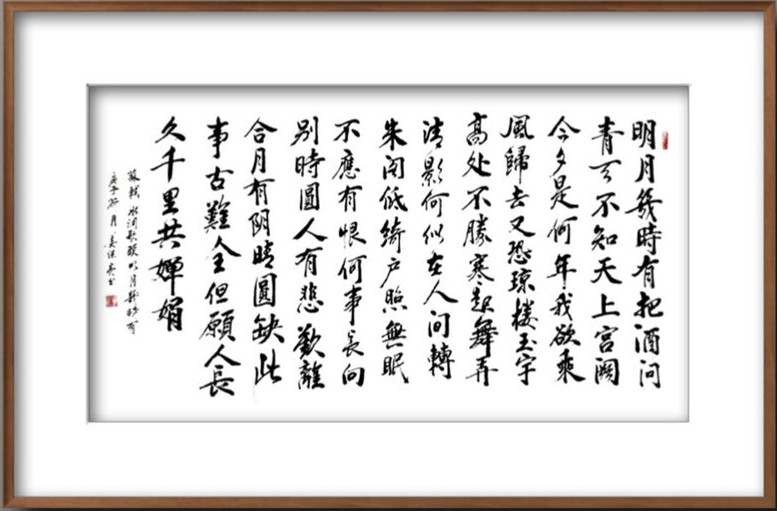 明月幾時有把酒问
青天不知天上宫阙
今夕是何年我欲乘
風歸去又恐琼楼玉宇
高处不勝寒起舞弄
清影何似在人间轉
朱阁低绮户照無眠
不應有恨何事長向
别時圓人有悲歡離
合月有阴晴圓缺此
事古難全但願人長
久千里共嬋娟
蘇軾水调歌頭明月幾時有
庚子月姜书